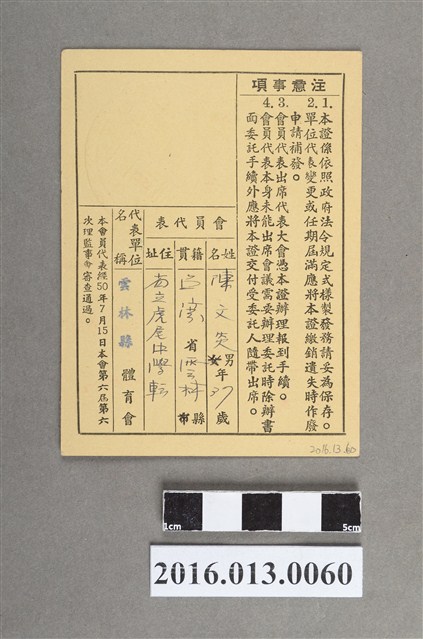 注意事項
1.本證係依照政府法令規定式樣製發務請妥為保存。
2.單位代表變更或任期屆滿應將本證繳銷遺失時作廢
申請補發。
3.會員代表出席代表大會憑本證辦理報到手續。
4.會員代表本身未能出席會議需要辦理委託時除辦書
面委託手續外應將本證交付受委託人隨帶出席。
會員代表
姓名 陳文炎 男 年37歲
籍貫 台灣省雲林縣
住址 省立虎尾中學轉
代表單位名稱 雲林縣體育會
本會員代表經50年7月15日本會第六屆第六
次理監事會審查通過。
2016.13.60
1cm
5cm
2016.013.0060